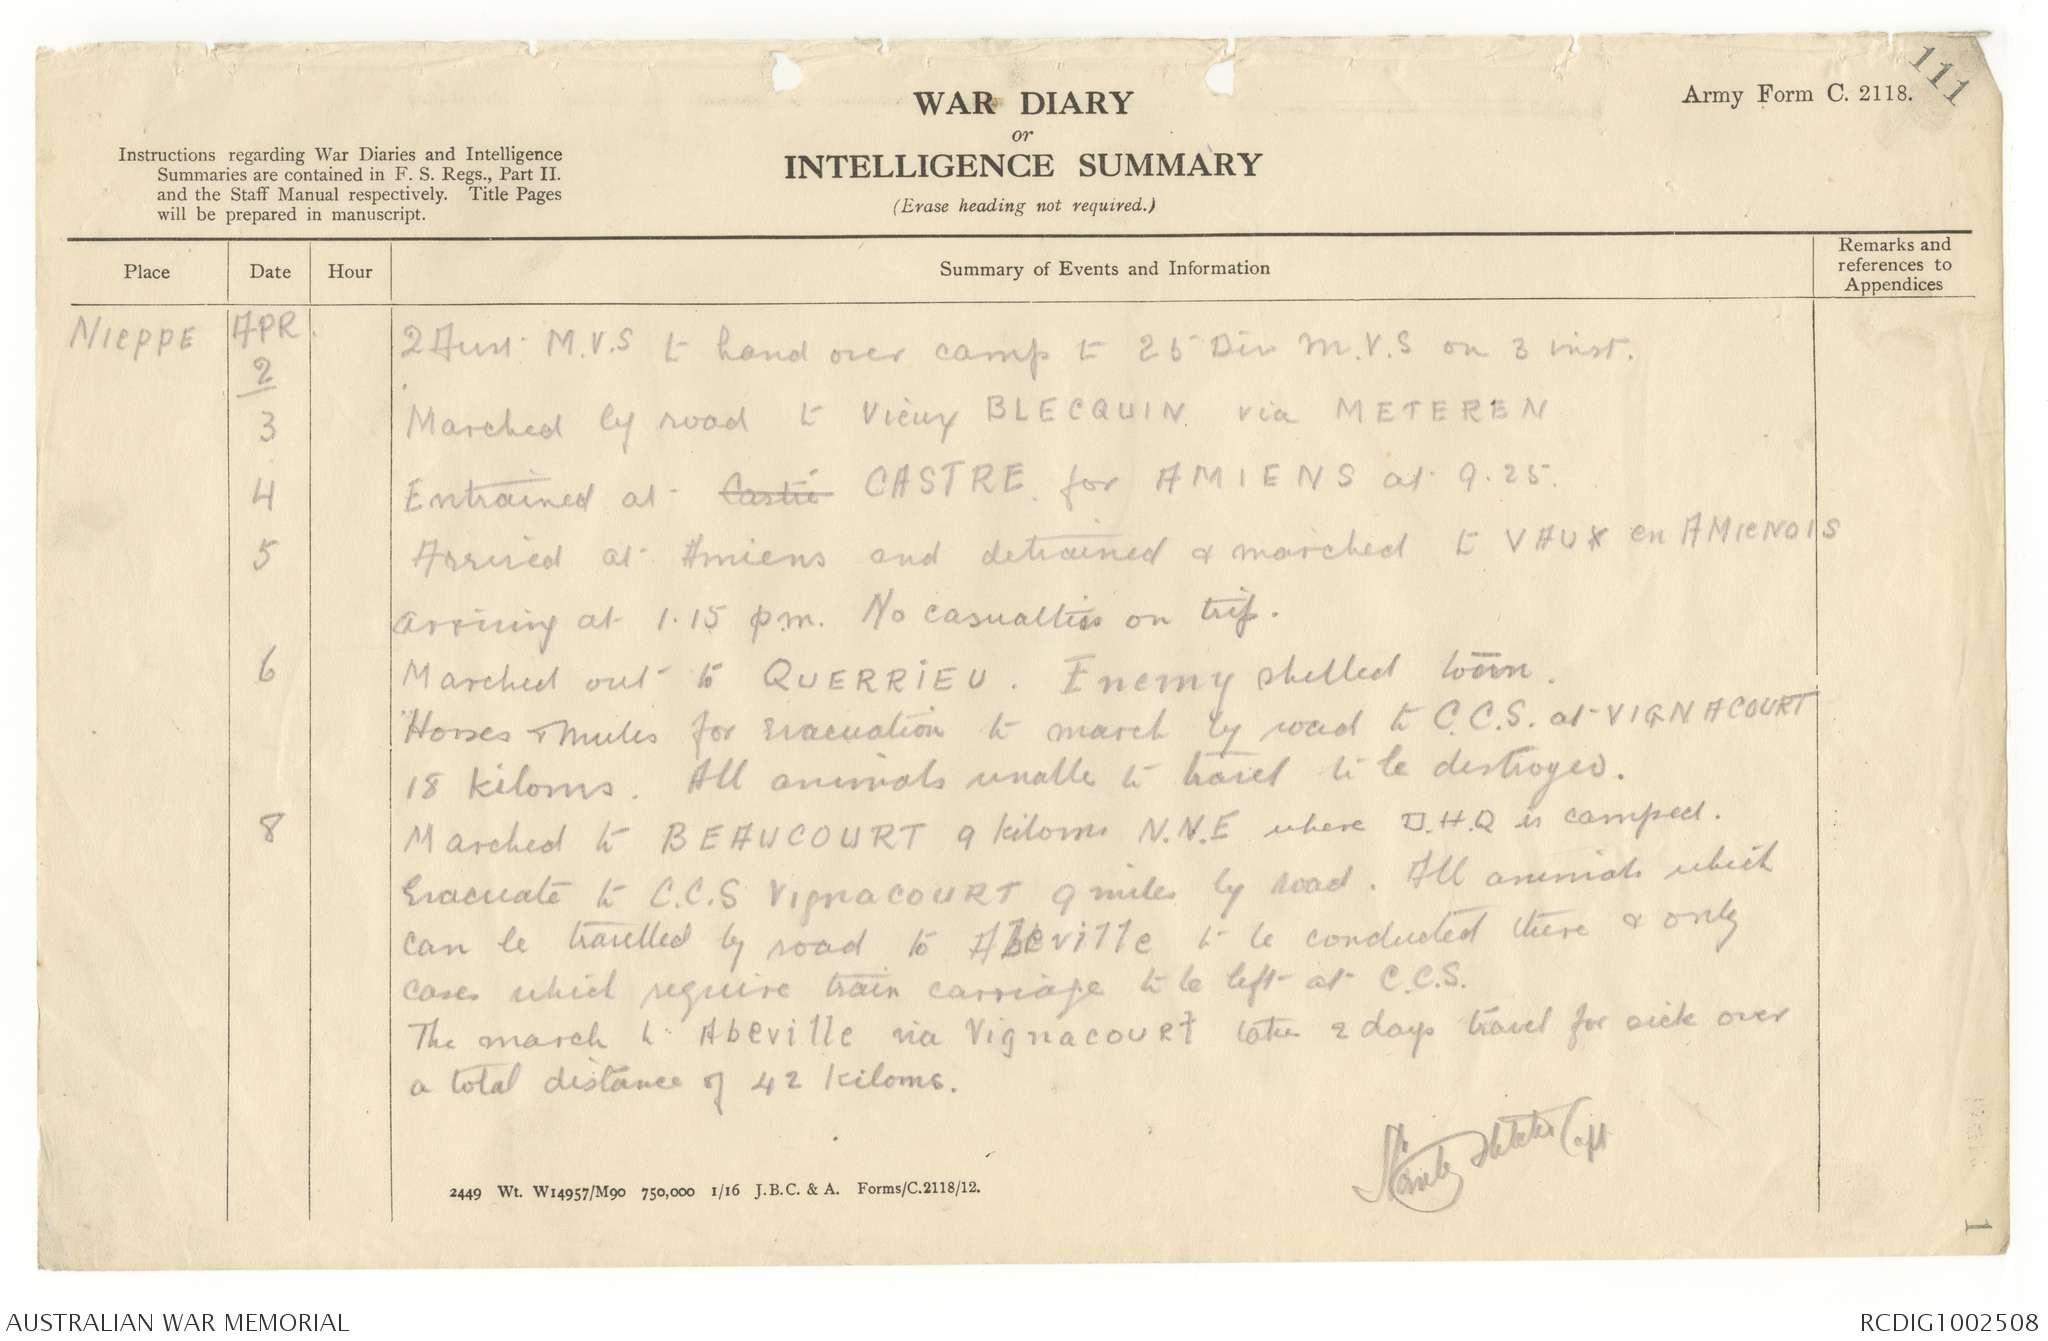 111
Army Form C. 2118.
WAR DIARY
or
INTELLIGENCE SUMMARY
(Erase heading not required.)
Instructions regarding War Diaries and Intelligence
Summaries are contained in F. S. Regs., Part II.
and the Staff Manual respectively. Title Pages
will be prepared in manuscript.
Place Date Hour Summary of Events and Information Remarks and references to Appendices
NIEPPE APR
2 2 Aust. M.V.S to hand over camp to 25 Div M.V.S on 3 inst.
3 Marched by road to Vieux BLECQUIN via METEREN
4 Entrained at Castré CASTRE for AMIENS at 9.25.
5 Arrived at Amiens and detrained & marched to VAUX en AMIENOIS
arriving at 1.15 pm. No casualties on trip.
6 Marched out to QUERRIEU. Enemy shelled town.
Horses & mules for evacuation to march by road to C.C.S. at VIGNACOURT
18 kiloms. All animals unable to travel to be destroyed.
8 Marched to BEAUCOURT 9 kiloms N.N.E where D.H.Q is camped.
Evacuate to C.C.S VignaCOURT 9 miles by road. All animals which
can be travelled by road to Abeville to be conducted there & only
cases which require train carriage to be left at C.C.S.
The march to Abeville via Vignacourt takes 2 days travel for sick over
a total distance of 42 kiloms.
Capt
2449 Wt. W14957/M90 750,000 1/16 J.B.C. & A. Forms/C.2118/12.
1
AUSTRALIAN WAR MEMORIAL
RCDIG1002508